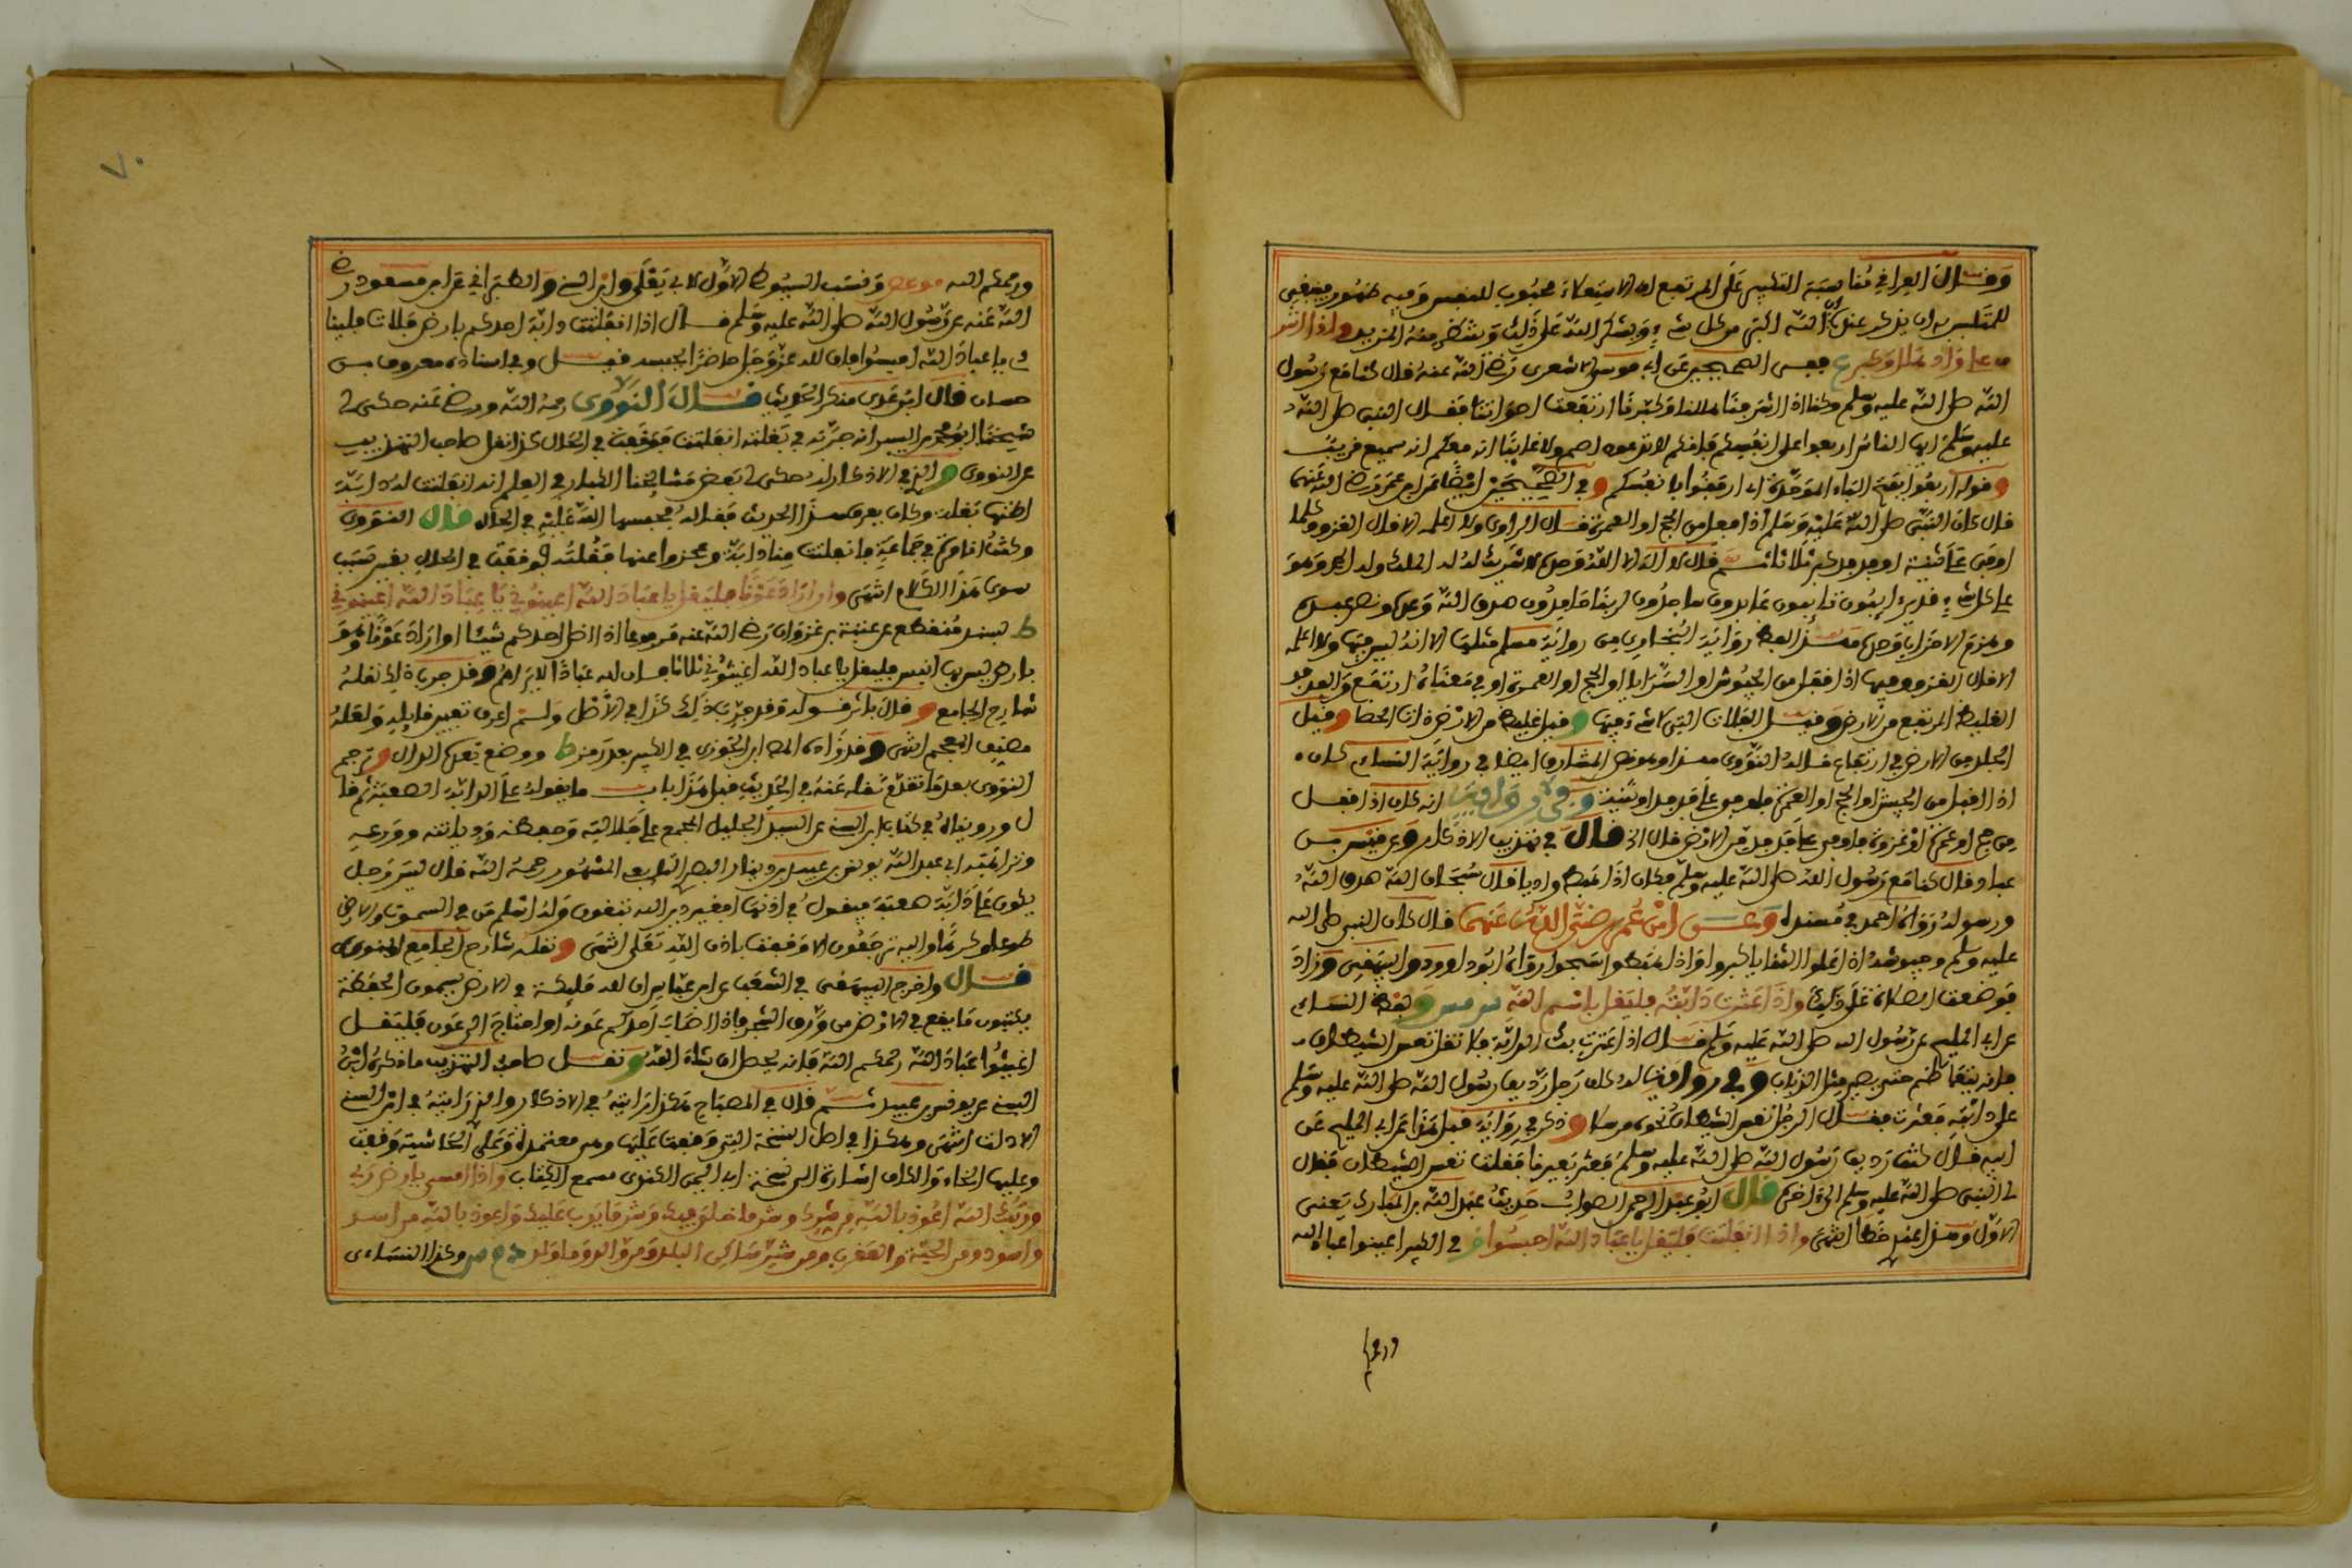 وقال العراقي مناسبة التكبير على المرتفع ان الاستعلاء محبوب للنفس وفيه ظهور فينبغي
للمتلبس به ان يذكر عنده ان الله اكبر من كل شيء ويشكر الله على ذلك ويستمطر منه المزيد واذا اشر
ف على واد هلل وكبر ع ففي الصحيحين عن ابي موسى الاشعري رضي الله عنه قال كنا مع رسول
الله صلى الله عليه وسلم وكنا اذا اشرفنا هللنا وكبرنا ارتفعت اصواتنا فقال النبي صلى الله
عليه وسلم ايها الناس اربعوا على انفسكم فانكم لا تدعون اصم ولا غائبا انه معكم انه سميع قريب
وقوله اربعوا بفتح الباء الموحدة اي ارفقوا بانفسكم وفي الصحيحين ايضا عن ابن عمر رضي الله عنهما
قال كان النبي صلى الله عليه وسلم اذا قفل من الحج او العمرة قال الراوي ولا اعلمه الا قال الغزو كلما
اوفى على ثنية او فدفد كبر ثلاثا ثم قال لا اله الا الله وحده لا شريك له له الملك وله الحمد وهو
على كل شيء قدير ايبون تايبون عابدون ساجدون لربنا حامدون صدق الله وعده ونصر عبده
وهزم الاحزاب وحده هذا لفظ رواية البخاري وفي رواية مسلم مثلها الا انه ليس فيها ولا اعلمه
الا قال الغزو وفيها اذا قفل من الجيوش او السرايا او الحج او العمرة اوفى معناه ارتفع والفدفد
الغليظ المرتفع من الارض وقيل الفلاة التي لا شيء فيها وقيل غليظ من الارض ذات الحصا وقيل
الجلد من الارض في ارتفاع قاله النووي هذا وهو في المشارق ايضا في رواية النساءي كان
اذا اقفل من الجيش او الحج او العمرة فاوفى على فدفد او ثنية وفي رواية انه كان اذا قفل
من حج او عمرة او غزوة فاوفى على فدفد من الارض قال الخ قال في تهذيب الاذكار وعن قيس بن
عباد قال كنا مع رسول الله صلى الله عليه وسلم فكان اذا هبط واديا قال سبحان الله صدق الله
ورسوله رواه احمد في مسنده وعن ابن عمر رضي الله عنهما قال كان النبي صلى الله
عليه وسلم وجيوشه اذا علوا الثنايا كبروا واذا هبطوا سبحوا رواه ابو داوود والبيهقي وزاد
فوضعت الصلاة على ذلك واذا عثرت دابته فليقل باسم الله ولفظ النساءي
عن ابي المليح عن رسول الله صلى الله عليه وسلم قال اذا عثرت بك الدابة فلا تقل تعس الشيطان
فانه يتعاظم حتى يصير مثل الذباب وفي رواية له كان رجل رديف رسول الله صلى الله عليه وسلم
على دابته فعثرت فقال الرجل تعس الشيطان نحوه مرسلا وذكر في رواية قبل هذا عن ابي المليح عن
ابيه قال كنت رديف رسول الله صلى الله عليه وسلم فعثر بعيرنا فقلت تعس الشيطان فقال
لي النبي صلى الله عليه وسلم الى اخره قال ابو عبد الرحمن الصواب حديث عبد الله بن المبارك يعني
الاول وهذا عندي خطا انتهى واذا انفلتت فليقل يا عباد الله احبسوا في الكبير اعينوا عباد الله
ورحمكم الله ونسب السيوطي الاول لابي يعلى وابن السني والطبراني عن ابن مسعود رضي
الله عنه عن رسول الله صلى الله عليه وسلم قال اذا انفلتت دابة احدكم بارض فلاة فلينا
د يا عباد الله احبسوا فان لله عز وجل حاضرا يحبسه قيل وفي اسناده معروف بن
حسان قال ابن عدي منكر الحديث قال النووي رحمه الله ورضي عنه حكى لي
شيخنا ابو محمد بن ابي اليسر انه جربه في بغلته انفلتت فوقفت في الحال كذا نقل صاحب التهذيب
عن النووي والذي في الاذكار له حكى لي بعض مشايخنا الكبار في العلم انه انفلتت له دابة
اظنها بغلة وكان يعرف هذا الحديث فقاله فحبسها الله عليه في الحال قال النووي
وكنت انا مرة في جماعة فانفلتت منا دابة وعجزوا عنها فقلته فوقفت في الحال بغير سبب
سوى هذا الكلام انتهى وان اراد عونا فليقل يا عباد الله اعينوني يا عباد الله اعينوني
ط بسند منقطع عن عتبة بن غزوان رضي الله عنه مرفوعا اذا اضل احدكم شيئا او اراد عونا وهو
بارض ليس بها انيس فليقل يا عباد الله اغيثوني ثلاثا فان لله عبادا لا يراهم وقد جرب ذلك نقله
شارح الجامع وقال باثر قوله وقد جرب ذلك كذا في الاصل ولم اعرف تعيين قايله ولعله
مصنف المعجم انتهى وقد زاده ابن الجوزي في الكبير بعد رمز ط ووضع تعدله الدال وترجم
النووي بعد ما تقدم نقله عنه في الحديث قبل هذا باب ما يقوله على الدابة الصعبة ثم قا
ل وروينا في كتاب ابن السني عن السيد الجليل المجمع على جلالته وحفظه وديانته وورعه
ونزاهته ابي عبد الله يونس بن عبيد بن دينار البصري التابعي المشهور رحمه الله قال ليس رجل
يكون على دابة صعبة فيقول في اذنها افغير دين الله تبغون وله اسلم من في السموات والارض
طوعا وكرها واليه ترجعون الا وقفت باذن الله تعلى انتهى ونقله شارح الجامع المنوي
قال واخرج البيهقي في الشعب عن ابن عباس ان لله مليكة في الارض يسمون الحفظة
يكتبون ما يقع في الارض من ورق الشجر فاذا اصاب احدكم عونه او احتاج الى عون فليقل
اغيثوا عباد الله رحمكم الله فانه يحصل ان شاء الله ونقل صاحب التهذيب ما ذكره ابن
السني عن يونس بن عبيد ثم قال في المصباح هكذا رايته في الاذكار والذي رايته في ابن السني
الا ذلت انتهى وهكذا في اصل النسخة التي وقفت عليها وهي معتمدة وعلى الحاشية وقفت
وعليها الخاء والكاف اشارة الى نسخة ابي اليمن الكندي مسمع الكتاب واذا امسى بارض ربي
وربك الله اعوذ بالله من شرك وشر ما خلق فيك وشر ما يدب عليك واعوذ بالله من اسد
واسود ومن الحية والعقرب ومن شر ساكن البلد ومن والد وما ولد وكذا النساءي